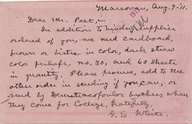 Marsovan, Aug. 9-11.
Dear Mr. Peet,:-
In addition to binding supplies
ordered of you, we need cardboard,
brown or bistre in color, dark straw
color perhaps, no. 30, and 60 sheets
in quantity. Please procure, add to the
other order in sending if you can, or
send by Demetracopoulos brothers when
they come for College, gratefully,
G. E. White.